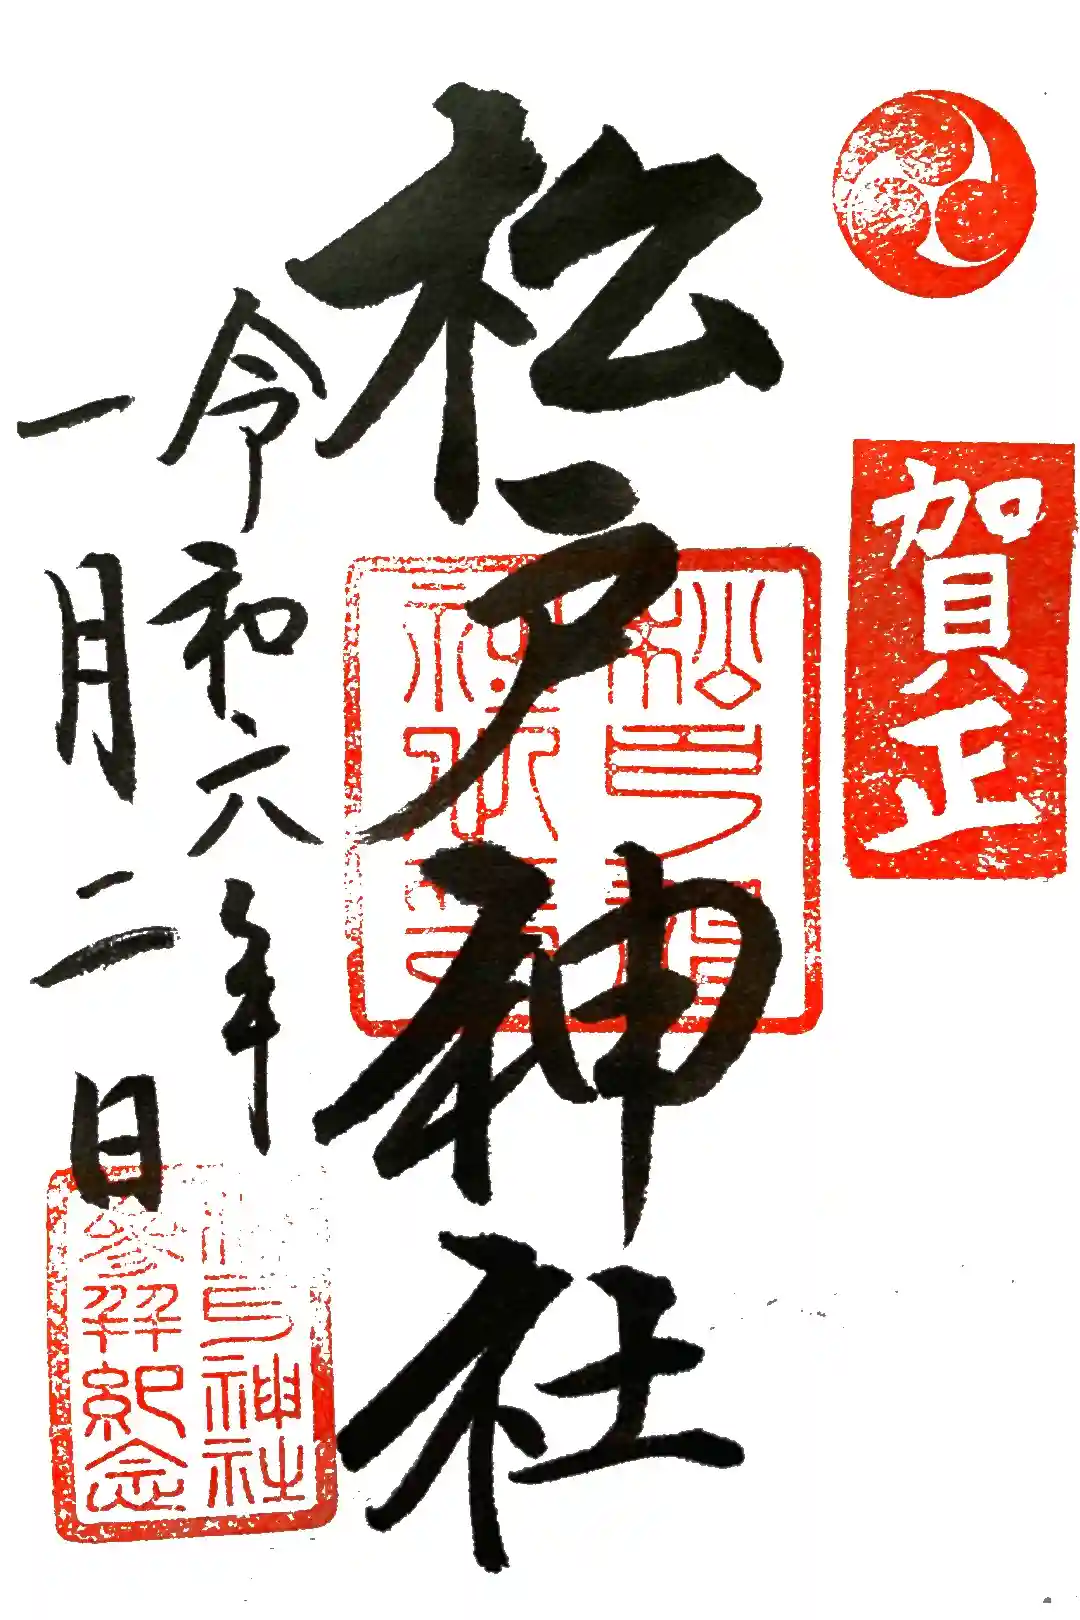 賀正
松戸神社
令和六年
一月二日
松戸神社
参拝紀念